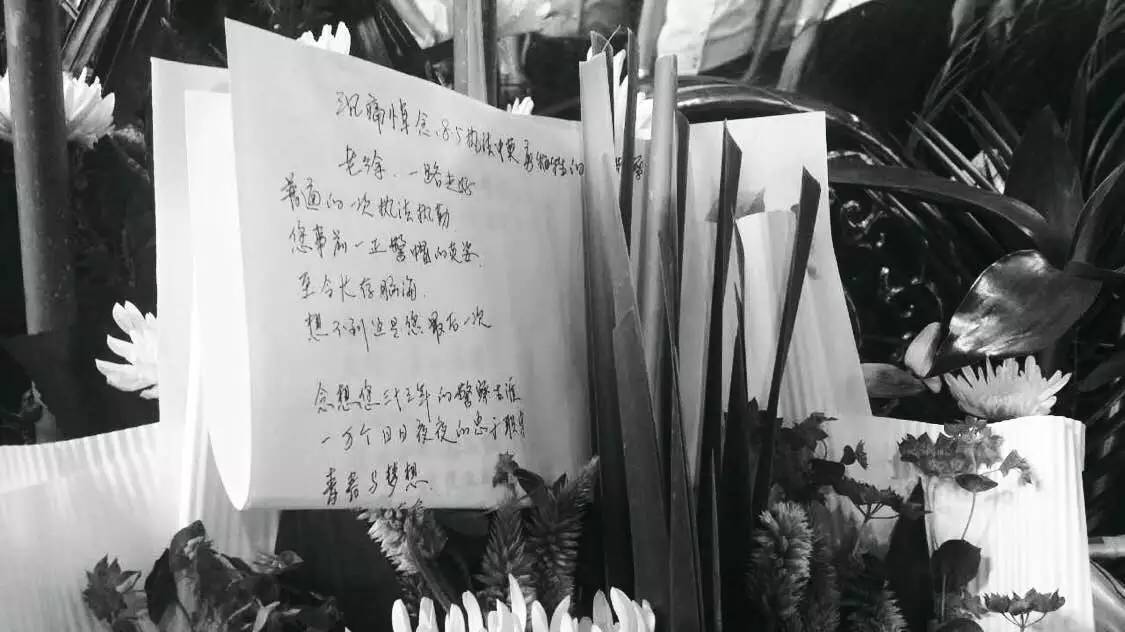 沉痛悼念8.5执法中英勇牺牲的
老徐,一路走好
普通的一次执法执勤
您事前一正警帽的英姿
至今长存脑海.
想不到这是您最后一次
念想您年的警察生涯
一万个日日夜夜的忠于职守
青春与梦想.